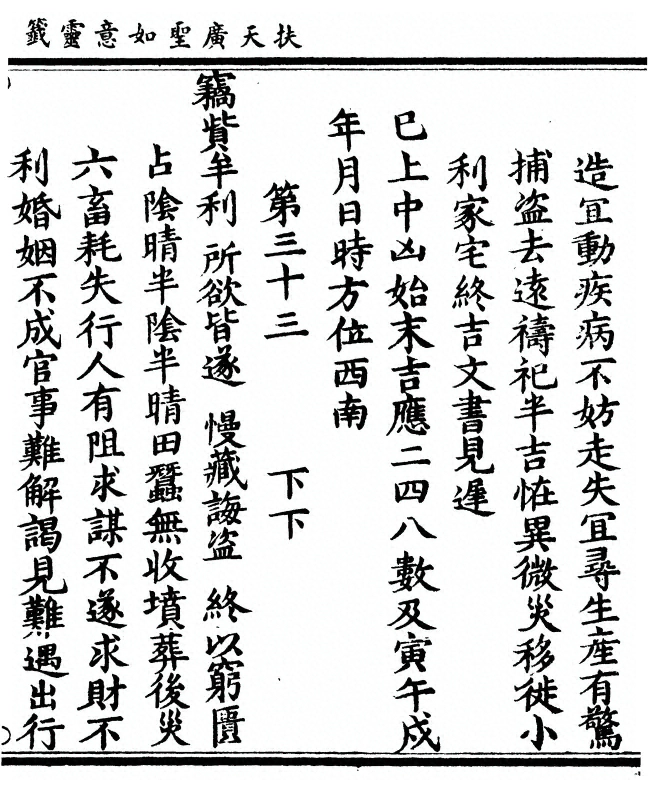 扶天廣聖如意靈籤
造冝動疾病不妨走失冝尋生産有驚
捕盗去遠禱祀半吉恠異微災移徙小
利家宅終吉文書見遲
已上中凶始末吉應二四八數及寅午戍
年月日時方位西南
第三十三 下下
竊貲牟利 所欲皆遂 慢藏誨盗 終以窮匱
占陰晴半陰半晴田蠶無收墳葬後災
六畜耗失行人有阻求謀不遂求財不
利婚姻不成官事難解謁見難遇出行